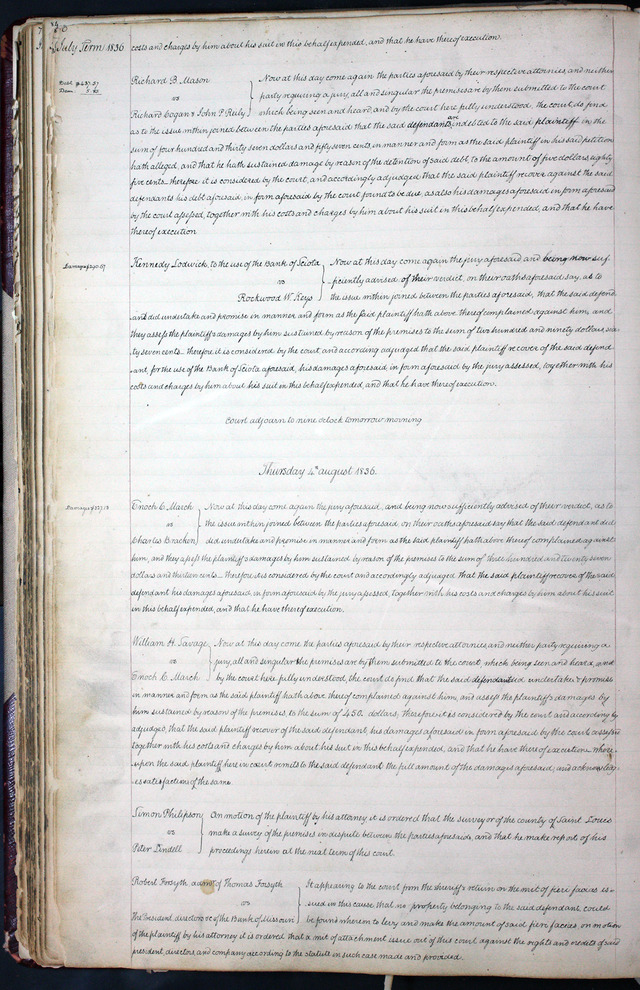 July Term 1836
costs and charges by him about his suit in this behalf expended, and that he have thereof execution.
Debt $437.57
Dam. 5.85
Richard B. Mason
vs
Richard Cogan & John P. Reily
Now at this day come again the parties aforesaid by their respective attornies, and neither
party requiring a jury, all and singular the premises are by them submitted to the court
which being seen and heard, and by the court here fully understood, the court do find
as to the issue within joined between the parties aforesaid that the said defendants are indebted to the said plaintiff in the
sum of four hundred and thirty seven dollars and fifty seven cents, in manner and form as the said plaintiff in his said petition
hath alleged, and that he hath sustained damage by reason of the detention of said debt, to the amount of five dollars eighty
five cents – therefore it is considered by the court, and accordingly adjudged that the said plaintiff recover against the said
defendants his debt aforesaid, in form aforesaid by the court found to be due, as also his damages aforesaid, in form aforesaid
by the court assessed, together with his costs and charges by him about his suit in this behalf expended, and that he have
thereof execution
Damages $290.67
Kennedy Lodwick, to the use of the Bank of Sciota
vs
Rockwood W. Keys
Now at this day come again the jury aforesaid and being now suf-
ficiently advised of their verdict, on their oaths aforesaid say, as to
the issue within joined between the parties aforesaid, that the said defend-
and did undertake and promise in manner and form as the said plaintiff hath above thereof complained against him, and
they assess the plaintiff's damages by him sustained by reason of the premises to the sum of two hundred and ninety dollars, six-
ty seven cents – therefore it is considered by the court and according adjudged that the said plaintiff recover of the said defend-
ant, for the use of the Bank of Sciota aforesaid, his damages aforesaid in form aforesaid by the jury assessed, together with his
costs and charges by him about his suit in this behalf expended, and that he have thereof execution.
Court adjourn to nine o'clock tomorrow morning
Thursday 4th august 1836.
Damages $327.13
Enoch C. March
vs
Charles Bracken
Now at this day come again the jury aforesaid, and being now sufficiently advised of their verdict, as to
the issue within joined between the parties aforesaid, on their oaths aforesaid say that the said defendant did
did undertake and promise in manner and form as the said plaintiff hath above thereof complained against
him, and they assess the plaintiff's damages by him sustained by reason of the premises to the sum of three hundred and twenty seven
dollars and thirteen cents – Therefore it is considered by the court and accordingly adjuged, that the said plaintiff recover of the said
defendant his damages aforesaid, in form aforesaid by the jury assessed, together with his costs and charges by him about his suit
in this behalf expended, and that he have thereof execution.
William H. Savage
vs
Enoch C. March
Now at this day come the parties aforesaid by their respective attornies, and neither party requiring a
jury, all and singular the premises are by them submitted to the court, which being seen and heard, and
by the court here fully understood, the court do find that the said defendant did undertake & promise
in manner and form as the said plaintiff hath above thereof complained against him, and assess the plaintiff's damages by
him sustained by reason of the premises, to the sum of 450. dollars, therefore it is considered by the court and according by
adjudged, that the said plaintiff recover of the said defendant, his damages aforesaid in form aforesaid by the court assessed
together with his costs and charges by him about his suit in this behalf expended, and that he have thereof execution – where-
upon the said plaintiff here in court remits to the said defendant the full amount of the damages aforesaid, and acknowledg-
es satisfaction of the same.
Simon Philipson
vs
Peter Lindell
On motion of the plaintiff by his attorney it is ordered that the surveyor of the county of Saint Louis
make a survey of the premises in dispute between the parties aforesaid, and that he make report of his
proceedings herein at the next term of this court.
Robert Forsyth admr. of Thomas Forsyth
vs
The President, directors &c of the Bank of Missouri
It appearing to the court from the sheriff's return on the writ of fieri facias is-
sued in this cause that no property belonging to the said defendant, could
be found wherein to levy and make the amount of said fieri facias, on motion
of the plaintiff by his attorney it is ordered that a writ of attachment issue out of this court against the rights and credits of said
president, directors, and company according to the statute in such case made and provided.